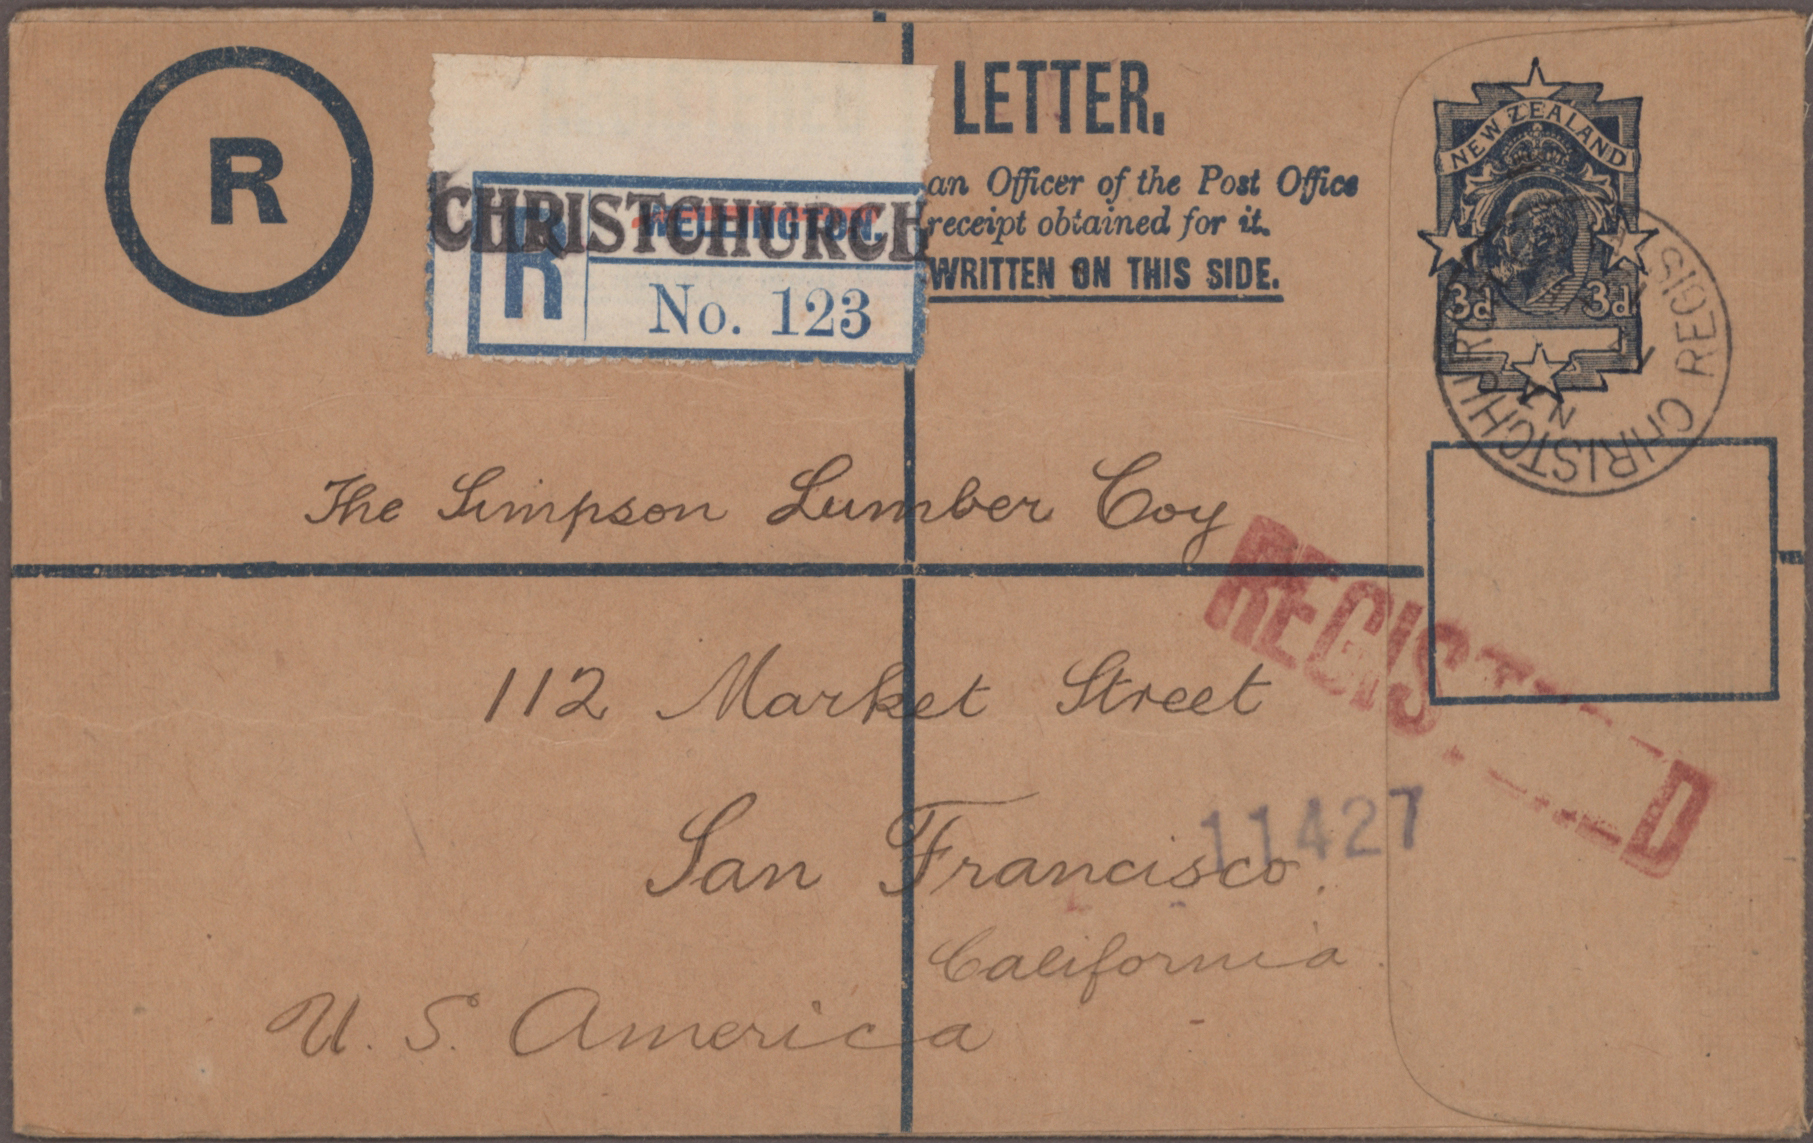 R
LETTER.
an Officer of the Post Office
receipt obtained for it.
WRITTEN ON THIS SIDE.
CHRISTCHURCH
WELLINGTON.
R
No. 123
NEW ZEALAND
3d 3d
CHRISTCHURCH REGIS
N.Z
The Simpson Lumber Coy
REGISTERED
112 Market Street
11427
San Francisco.
California.
U. S. America